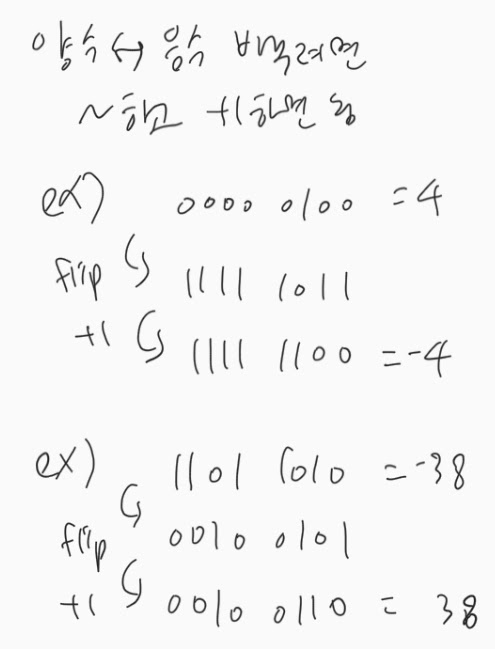 양수 ↔ 음수 바꾸려면
~ 하고 +1하면 됨
ex) 0000 0100 = 4
flip 1111 1011
+1 1111 1100 = -4
ex) 1101 1010 = -38
flip 0010 0101
+1 0010 0110 = 38